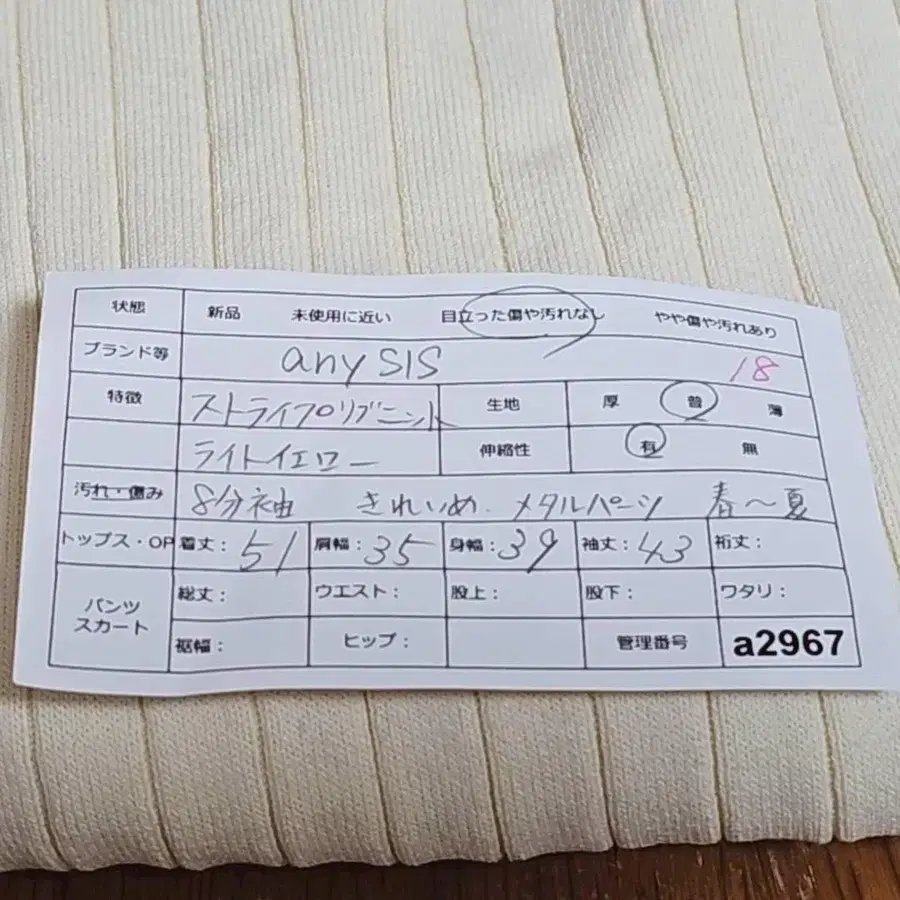 状態 新品 未使用に近い 目立った傷や汚れなし やや傷や汚れあり
ブランド等 any SIS 18
特徴 ストライプリブニット 生地 厚 普 薄
ライトイエロー 伸縮性 有 無
汚れ・傷み 8分袖 きれいめ メタルパーツ 春〜夏
トップス・OP 着丈：51 肩幅：35 身幅：39 袖丈：43 裄丈：
パンツ スカート 総丈： ウエスト： 股上： 股下： ワタリ：
裾幅： ヒップ： 管理番号 a2967